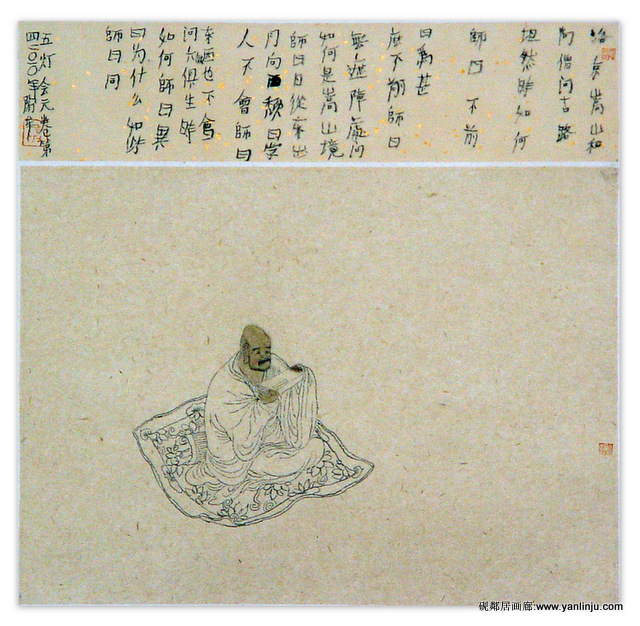 洛京嵩山和
尚僧问古路
坦然时如何
師曰不前
曰為甚
麽不前師曰
無遮障處问
如何是嵩山境
師曰日從東出
月向西頹曰学
人不會師曰
东西也不會
问六识俱生时
如何師曰異
曰为什么如此
師曰同
五灯会元卷第
四二〇一〇年
砚鄰居画廊:www.yanlinju.com